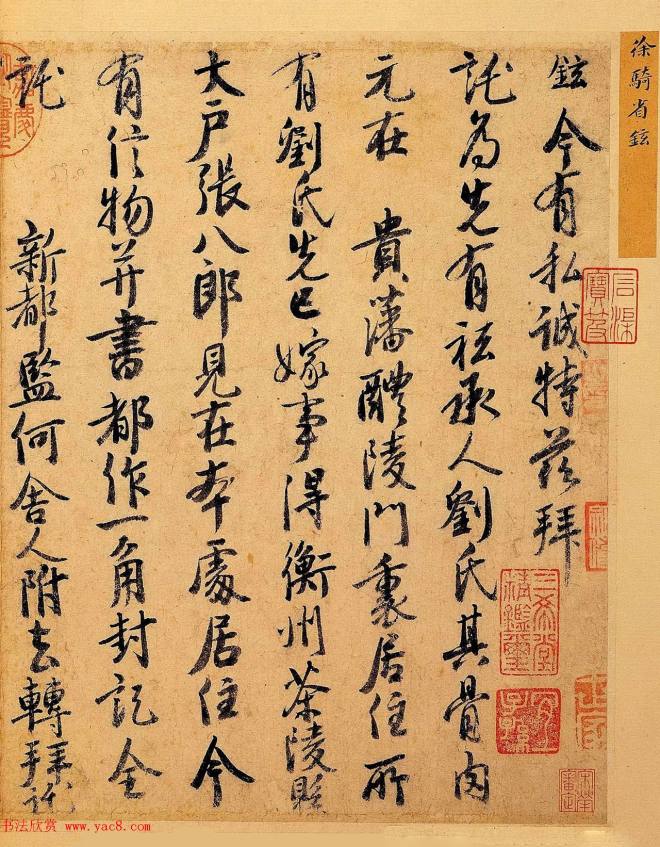 徐騎省鉉
鉉今有私誠特茲拜
託為先有祗承人劉氏其骨肉
元在 貴藩醴陵門裏居住所
有劉氏先已嫁事得衡州茶陵縣
大戶張八郎見在本處居住今
有信物并書都作一角封記全
託
新都監何舍人附去轉拜託
三希堂精鑑璽
宜子孫
书法欣赏 www.yac8.com